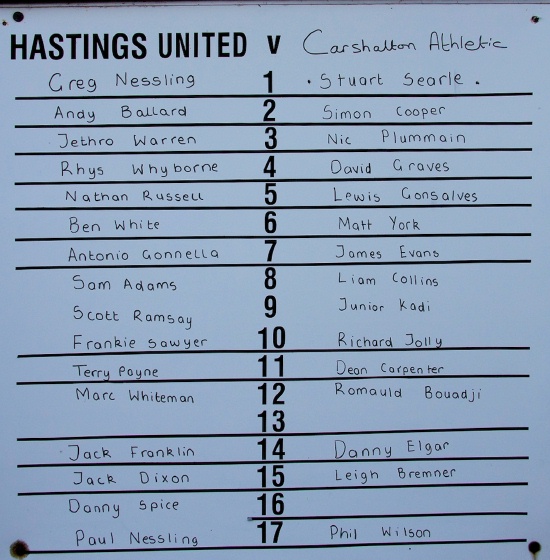 HASTINGS UNITED v Carshalton Athletic
Greg Nessling 1 . Stuart Searle .
Andy Ballard 2 Simon Cooper
Jethro Warren 3 Nic Plummain
Rhys Whyborne 4 David Graves
Nathan Russell 5 Lewis Gonsalves
Ben White 6 Matt York
Antonio Gonnella 7 James Evans
Sam Adams 8 Liam Collins
Scott Ramsay 9 Junior Kadi
Frankie Sawyer 10 Richard Jolly
Terry Payne 11 Dean Carpenter
Marc Whiteman 12 Romauld Bouadji
13
Jack Franklin 14 Danny Elgar
Jack Dixon 15 Leigh Bremner
Danny Spice 16
Paul Nessling 17 Phil Wilson